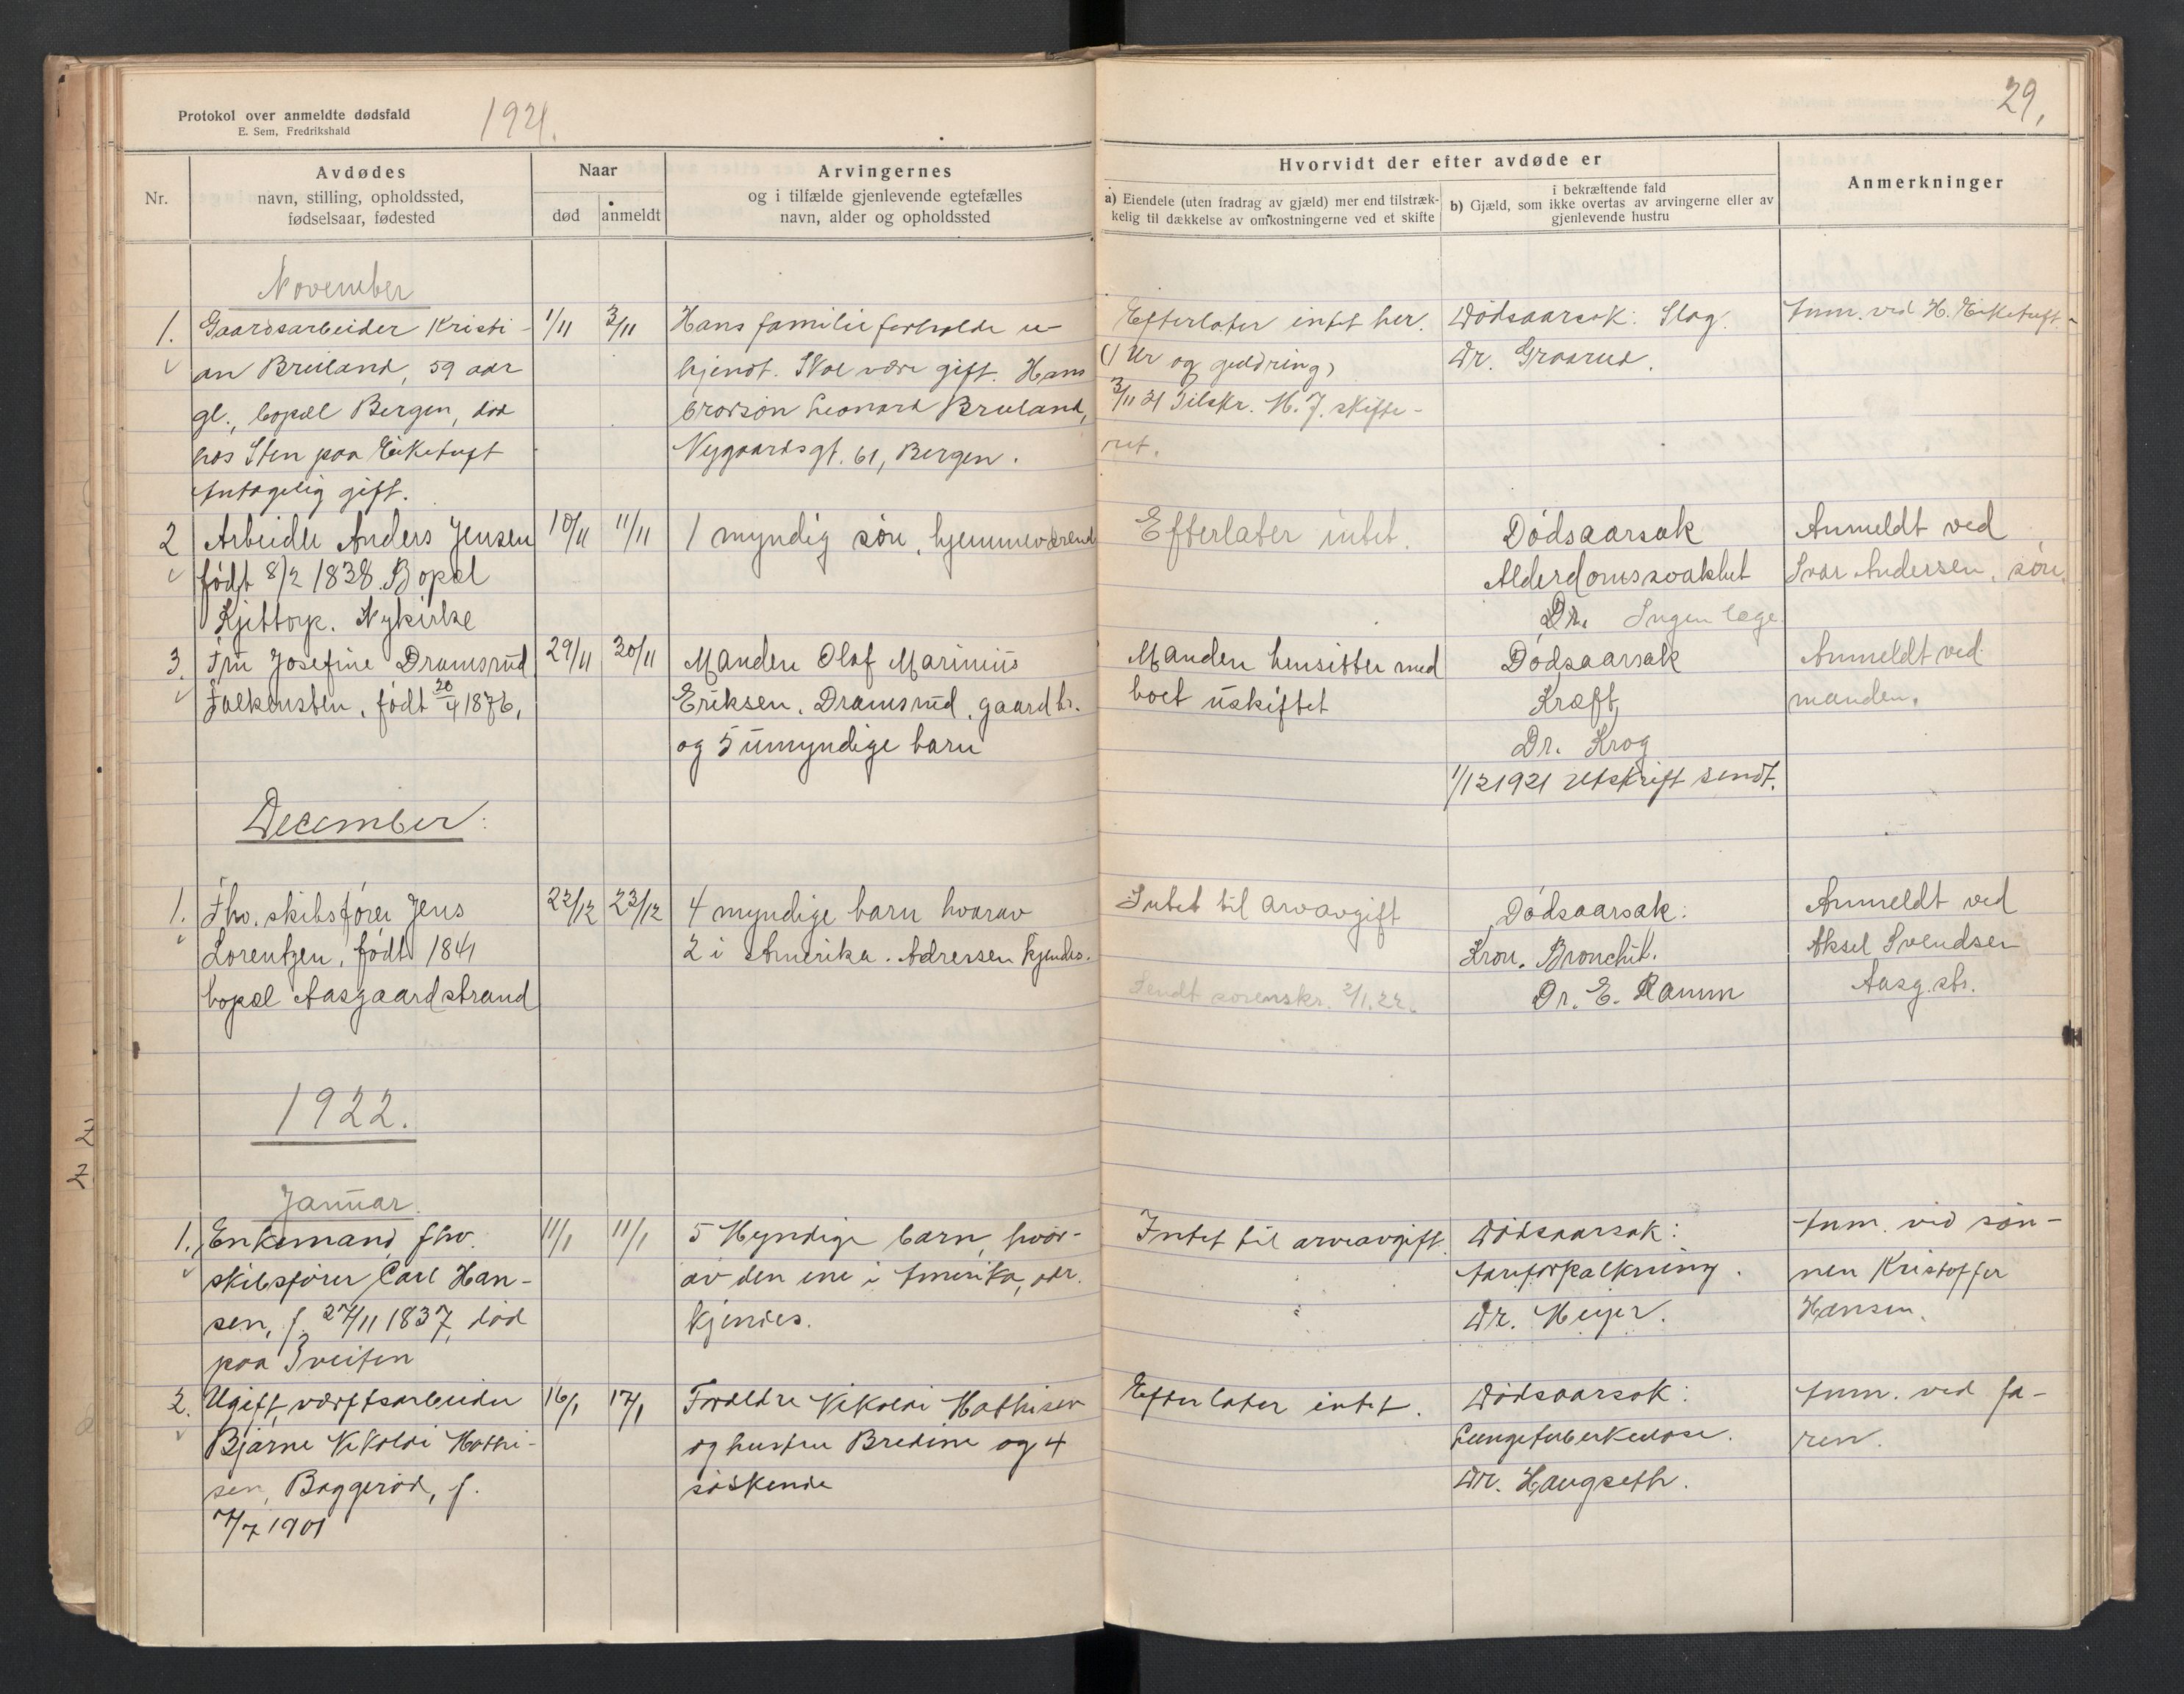 Protokol over anmeldte dødsfald
E. Sem, Fredrikshald
1921.
29,
Nr.
Avdødes
navn, stilling, opholdssted,
fødselsaar, fødested
Naar
død
anmeldt
Arvingernes
og i tilfælde gjenlevende egtefælles
navn, alder og opholdssted
Hvorvidt der efter avdøde er
a) Eiendele (uten fradrag av gjæld) mer end tilstræk-
kelig til dækkelse av omkostningerne ved et skifte
i bekræftende fald
b) Gjæld, som ikke overtas av arvingerne eller av
gjenlevende hustru
Anmerkninger
November
1.
Gaardsarbeider Kristi-
an Breiland, 59 aar
gl., bopæl Bergen, død
hos Sten paa Eiketuft
Antagelig gift.
1/11
3/11
Hans familieforholde u-
kjendt. Skal være gift. Hans
brorsøn Leonard Breiland,
Nygaardsgt. 61, Bergen.
Efterlater intet her.
(1 Ur og guldring)
3/11 21 Tilskr. N. J. skifte-
ret.
Dødsaarsak: Slag.
Dr. Graarud.
Anm. ved H. Eiketuft.
2
Arbeider Anders Jensen
født 8/2 1838. Bopæl
Kjittorp. Nykirke
10/11
11/11
1 myndig søn, hjemmeværend
Efterlater intet.
Dødsaarsak
Alderdomssvakhet
Dr. Ingen læge
Anmeldt ved
Ivar Andersen, søn.
3.
Fru Josefine Dramsrud
Falkensten, født 20/4 1876,
29/11
30/11
Manden Olaf Marinius
Eriksen, Dramsrud, gaardbr.
og 5 umyndige barn
Manden hensitter med
boet uskiftet
Dødsaarsak
Kræft,
Dr. Krog
1/12 1921 Utskrift sendt.
Anmeldt ved
manden.
December:
1.
Fhv. skibsfører Jens
Lorentzen, født 1841
bopæl Aasgaardstrand
22/12
23/12
4 myndige barn hvorav
2 i Amerika. Adressen kjendes.
Intet til arvavgift
Sendt sorenskr. 2/1.22.
Dødsaarsak:
Kron. Bronchit.
Dr. E. Ramm
Anmeldt ved
Aksel Svendsen
Aasg.str.
1922.
Januar.
1.
Enkemand, fhv.
skibsfører Carl Han-
sen, f. 27/11 1837, død
paa Tveiten
11/1
11/1
5 Myndige barn, hvor-
av den ene i Amerika, adr.
kjendes.
Intet til arveavgift.
Dødsaarsak:
Aareforkalkning.
Dr. Meyer.
Anm. ved søn-
nen Kristoffer
Hansen.
2.
Ugift, værftsarbeider
Bjarne Nikolai Mathi-
sen, Baggerød, f.
7/7 1901
16/1
17/1
Forældre Nikolai Mathisen
og hustru Bredine og 4
søskende
Efterlater intet.
Dødsaarsak:
Lungetuberkulose.
Dr. Haugseth.
Anm. ved fa-
ren.